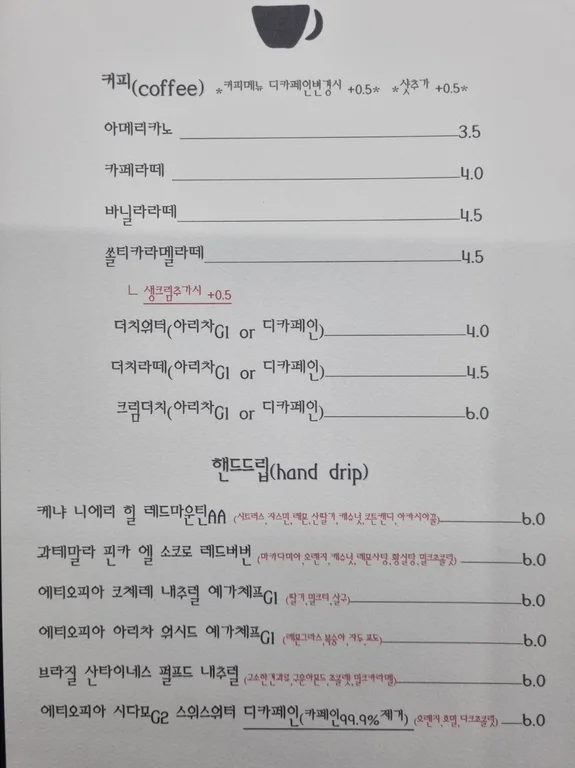 커피(coffee) *커피메뉴 디카페인변경시 +0.5* *샷추가 +0.5*
아메리카노 3.5
카페라떼 4.0
바닐라라떼 4.5
쏠티카라멜라떼 4.5
ㄴ 생크림추가시 +0.5
더치워터(아리차G1 or 디카페인) 4.0
더치라떼(아리차G1 or 디카페인) 4.5
크림더치(아리차G1 or 디카페인) 6.0
핸드드립(hand drip)
케냐 니에리 힐 레드마운틴AA (시트러스,자스민,레몬,산딸기,캐슈넛,코튼캔디,아카시아꿀) 6.0
과테말라 핀카 엘 소코로 레드버번 (마카다미아,오렌지,캐슈넛,레몬사탕,황설탕,밀크초콜렛) 6.0
에티오피아 코체레 내추럴 예가체프G1 (딸기,밀크티,살구) 6.0
에티오피아 아리차 워시드 예가체프G1 (레몬그라스,복숭아,자두,포도) 6.0
브라질 산타이네스 펄프드 내추럴 (고소한견과류,구운아몬드,초콜렛,밀크카라멜) 6.0
에티오피아 시다모G2 스위스워터 디카페인(카페인99.9%제거) (오렌지,호밀,다크초콜렛) 6.0